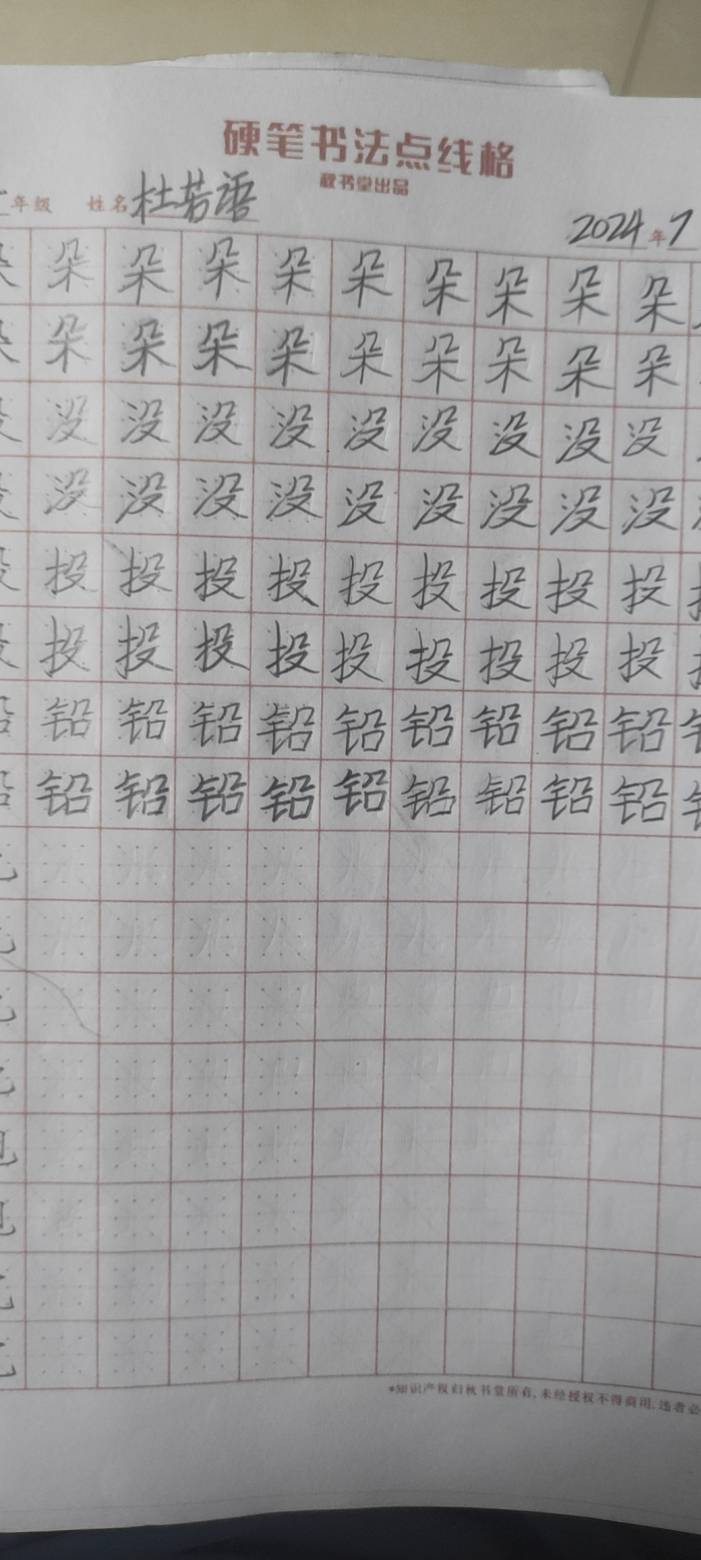 硬笔书法点线格
秋书堂出品
年级 姓名 杜芳语 2024年7
朵 朵 朵 朵 朵 朵 朵 朵 朵 朵
朵 朵 朵 朵 朵 朵 朵 朵 朵 朵
没 没 没 没 没 没 没 没 没 没
没 没 没 没 没 没 没 没 没 没
投 投 投 投 投 投 投 投 投
投 投 投 投 投 投 投 投 投
铅 铅 铅 铅 铅 铅 铅 铅 铅 铅
铅 铅 铅 铅 铅 铅 铅 铅 铅 铅
*知识产权归秋书堂所有,未经授权不得商用,违者必